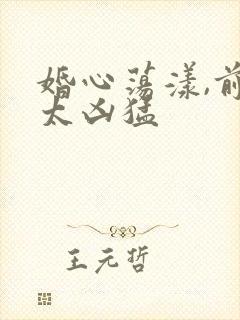 婚心荡漾,前
太凶猛
王元哲